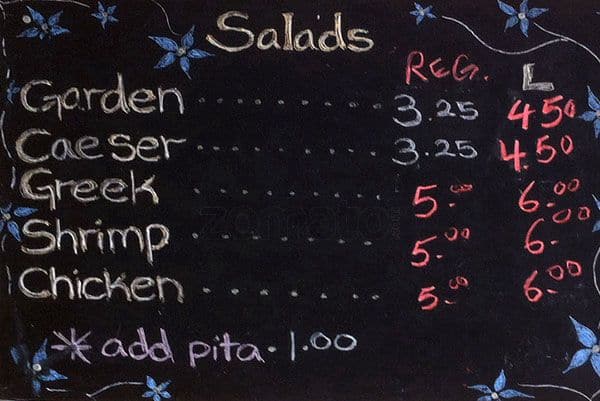 Salads
REG. L
Garden ........... 3.25 4.50
Caeser ........... 3.25 4.50
Greek ........... 5.00 6.00
Shrimp ........... 5.00 6.00
Chicken ........ 5.00 6.00
* add pita. 1.00
zomato